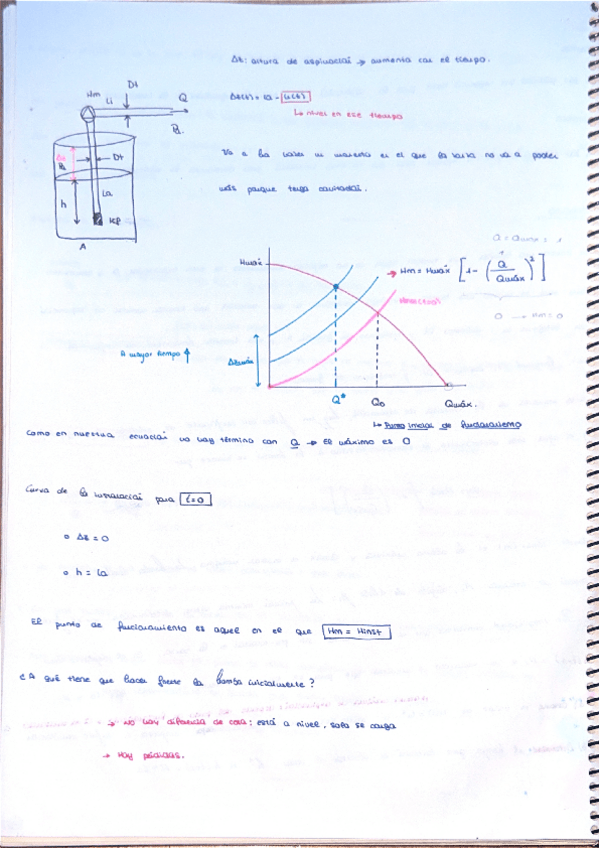 Δz: altura de aspiración → aumenta con el tiempo.
Dt
Hm
Li
Q
Δz(t) = La - h(t)
Pa.
↳ nivel en ese tiempo
Δz
Pa
Dt
Va a haber un momento en el que la bomba no va a poder
más porque tenga cavitación.
La
h
kp
A
Q = Qmáx = 1
Hmáx
→ Hm = Hmáx [1 - (Q/Qmáx)²]
Hinst(t=0)
0 → Hm = 0
A mayor tiempo ↑
Δzmáx
Q*
Q₀
Qmáx.
↳ Punto inicial de funcionamiento
Como en nuestra ecuación no hay término con Q → El máximo es 0
Curva de la instalación para t=0
Δz = 0
h = La
El punto de funcionamiento es aquel en el que Hm = Hinst
¿A qué tiene que hacer frente la bomba inicialmente?
→ No hay diferencia de cota: está a nivel, sola se carga
→ Hay pérdidas.